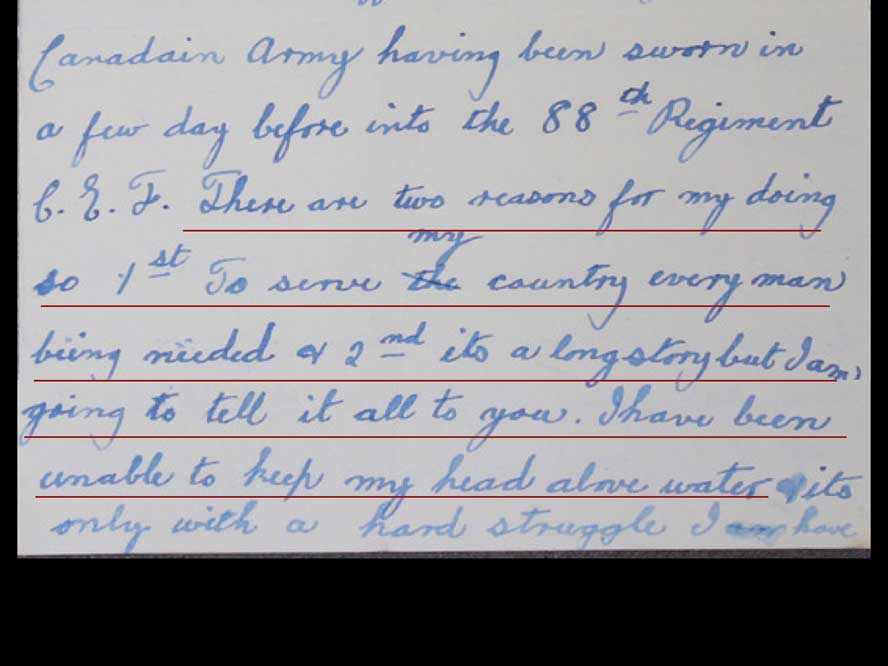 Canadain Army having been sworn in
a few day before into the 88th Regiment
C. E. F. There are two reasons for my doing
my
so 1st To serve the country every man
being needed & 2nd its a long story but I am,
going to tell it all to you. I have been
unable to keep my head above water its
only with a hard struggle I am have